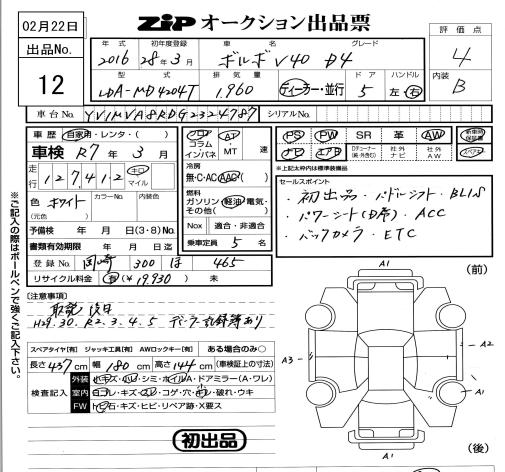 02月22日
出品No.
12
ZIP オークション出品票
評価点
4
内装
B
年式 初年度登録 車名 グレード
2016 28年3月 ボルボ V40 D4
型式 排気量 ドア ハンドル
LDA-MD4204T 1,960 ディーラー・並行 5 左・右
車台No. YV1MVA8RDG2324787 シリアルNo.
車歴 自家用・レンタ・( )
車検 R7年3月
走行 127,412 キロ マイル
色 ホワイト カラーNo. 内装色
(元色)
予備検 年 月 日(3・8)No.
書類有効期限 年 月 日迄
登録No. 岡崎 300 ほ 465
リサイクル料金 有(¥19,930) 未
フロア コラム インパネ AT・MT 速
冷房
無・C・AC・AAC
燃料
ガソリン・軽油・電気・その他( )
Nox 適合・非適合
乗車定員 5 名
PS PW SR 革 AW 新車時保証書
ナビ エアB 社外ナビ 社外AW
※上記太枠内は標準装備品
セールスポイント
・初出品・パドルシフト・BLIS
・パワーシート(D席)・ACC
・バックカメラ・ETC
※ご記入の際はボールペンで強くご記入下さい。
[注意事項]
取説 後日
H29.30.R2.3.4.5 ディーラー記録簿あり
スペアタイヤ[有] ジャッキ工具[有] AWロックキー[有] ある場合のみ○
長さ437cm 幅180cm 高さ144cm(車検証上の寸法)
検査記入
外装 小キズ・凹・シミ・ホイルA・ドアミラー(A・ワレ)
室内 汚れ・キズ・スレ・コゲ・穴・破れ・ウキ
FW トビ石・キズ・ヒビ・リペア跡・X要ス
初出品
A1
(前)
A3
A2
A1
A1
(後)